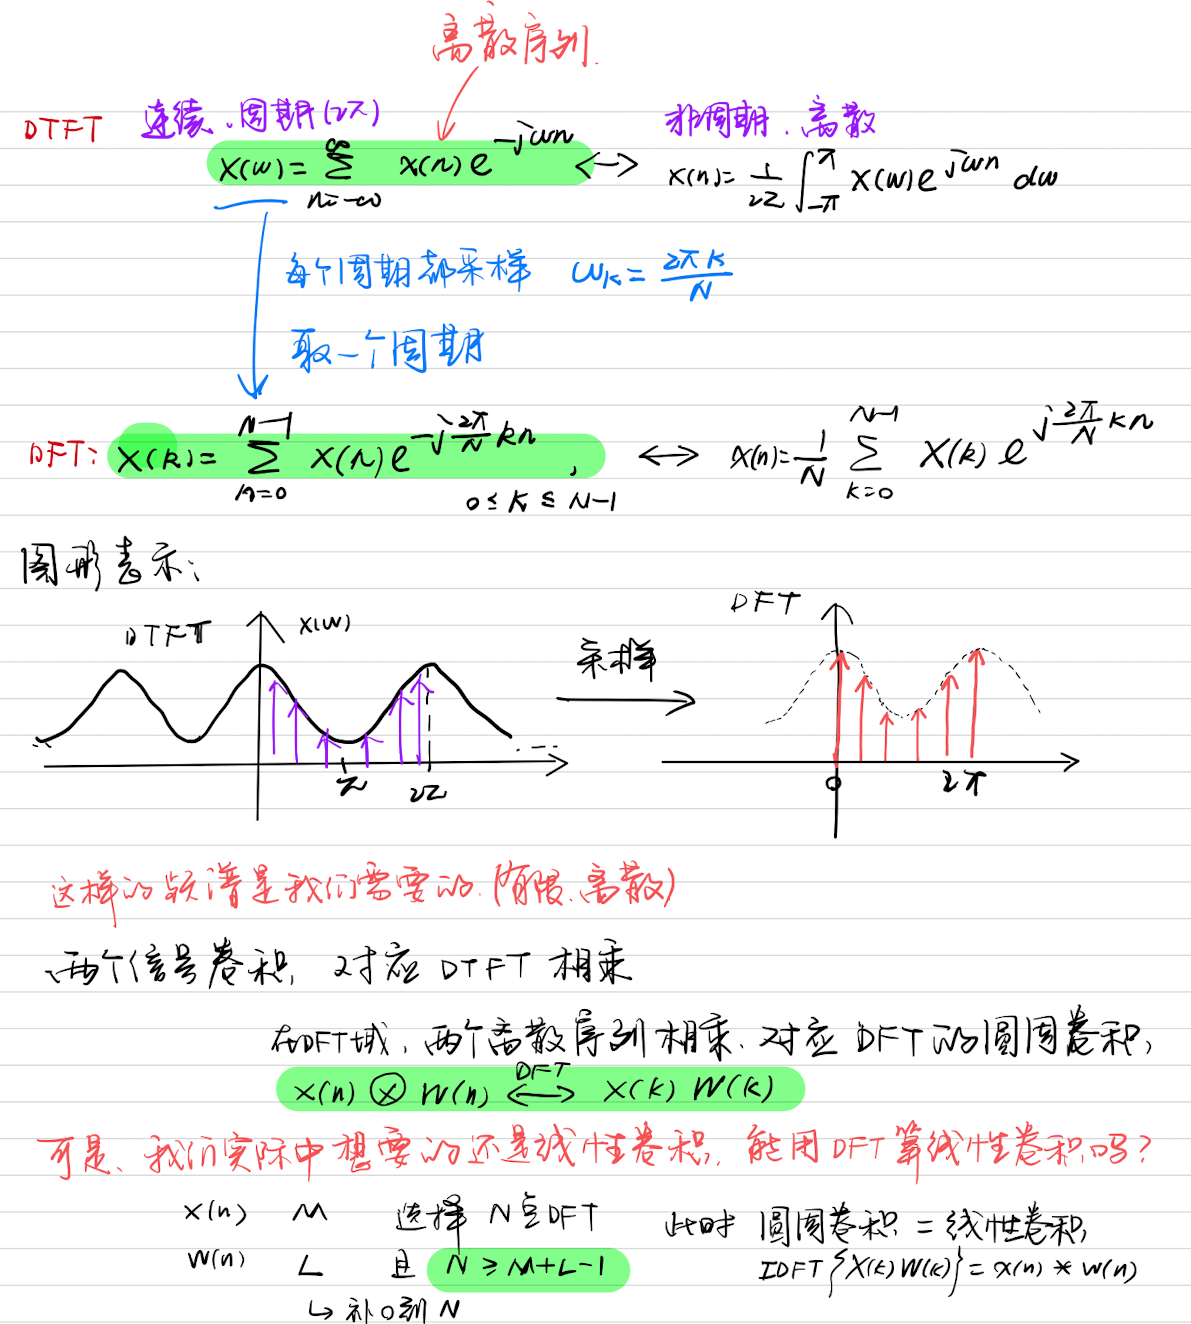 离散序列.
DTFT 连续、周期(2π) 非周期、离散
X(ω)= ∑_{n=-∞}^{∞} x(n) e^{-jωn} ⟷ x(n)= 1/2π ∫_{-π}^{π} X(ω)e^{jωn} dω
每个周期都采样 ω_k = 2πk/N
取一个周期
DFT: X(k)= ∑_{n=0}^{N-1} x(n) e^{-j 2π/N kn}, 0≤k≤N-1 ⟷ x(n)= 1/N ∑_{k=0}^{N-1} X(k) e^{j 2π/N kn}
图形表示:
DTFT X(ω) 采样 DFT
π 2π 0 2π
这样的频谱是我们需要的.(有限、离散)
两个信号卷积, 对应 DTFT 相乘
在DFT域, 两个离散序列相乘、对应 DFT 的圆周卷积,
x(n) ⊗ W(n) ⟷^{DFT} X(k) W(k)
可是、我们实际中想要的还是线性卷积, 能用DFT算线性卷积吗?
x(n) M 选择 N点DFT 此时 圆周卷积 = 线性卷积,
W(n) L 且 N ≥ M+L-1 IDFT{X(k)W(k)} = x(n) * w(n)
↳ 补0到 N